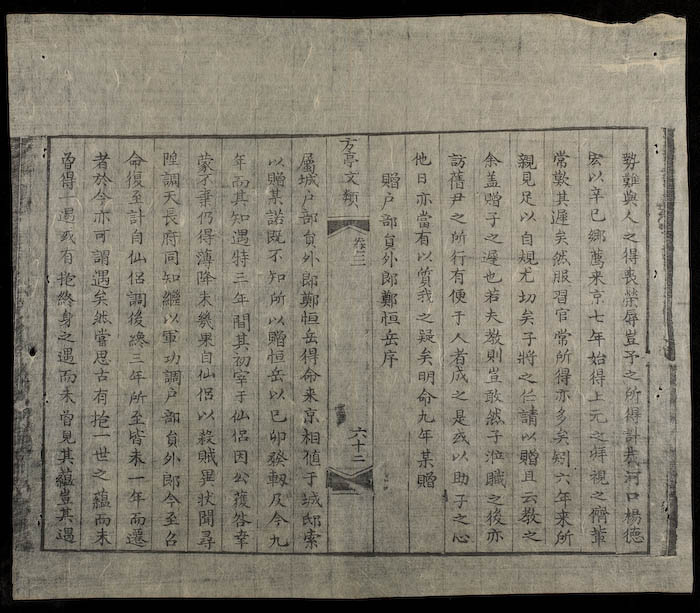 勢難與人之得喪榮辱豈予之所得計哉河口楊德
宏以辛巳鄉薦来京七年始得上元之拜視之儕軰
常歎其遲矣然服習官常所得亦多矣矧六年来所
親見足以自規尤切矣子將之任請以贈且云教之
余盖贈子之遲也若夫教則豈敢然子涖職之後亦
訪舊尹之所行有便于人者成之是或以助子之心
他日亦當有以質我之疑矣明命九年某贈
贈户部員外郎鄭恒岳序
方亭文類
卷三
六十二
屬城户部員外郎鄭恒岳得命来京相値于城邸索
以贈某諾既不知所以贈恒岳以己卯發軔及今九
年而其知遇特三年間其初宰于仙侶因公獲咎幸
蒙不棄仍得薄降未幾果自仙侶以殺賊異状聞尋
陞調天長府同知繼以軍功調户部員外郎今至召
命復至計自仙侶調後終三年所至皆未一年而遷
者於今亦可謂遇矣然嘗思古有抱一世之蘊而未
曾得一遇或有抱終身之遇而未曾見其蘊豈其遇